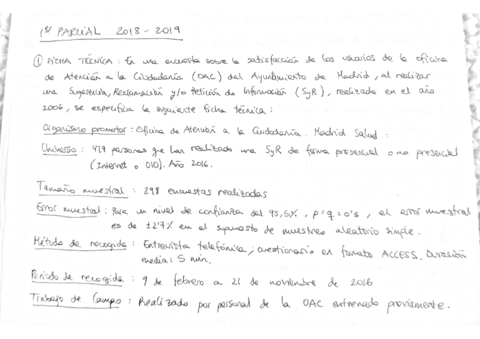 1er PARCIAL 2018-2019
① FICHA TÉCNICA: En una encuesta sobre la satisfacción de los usuarios de la oficina
de Atención a la Ciudadanía (OAC) del Ayuntamiento de Madrid, al realizar
una Sugerencia, Reclamación y/o Petición de Información (SyR), realizada en el año
2006, se especifica la siguiente ficha técnica:
Organismo promotor: Oficina de Atención a la Ciudadanía. Madrid Salud.
Universo: 429 personas que han realizado una SyR de forma presencial o no presencial
(Internet o 010). Año 2016.
Tamaño muestral: 298 encuestas realizadas
Error muestral: Para un nivel de confianza del 95,5%, p=q=0'5, el error muestral
es de ±2'7% en el supuesto de muestreo aleatorio simple.
Método de recogida: Entrevista telefónica, cuestionario en formato ACCESS. Duración
media: 5 min.
Periodo de recogida: 9 de febrero a 21 de noviembre de 2016
Trabajo de Campo: Realizado por personal de la OAC entrenado previamente.